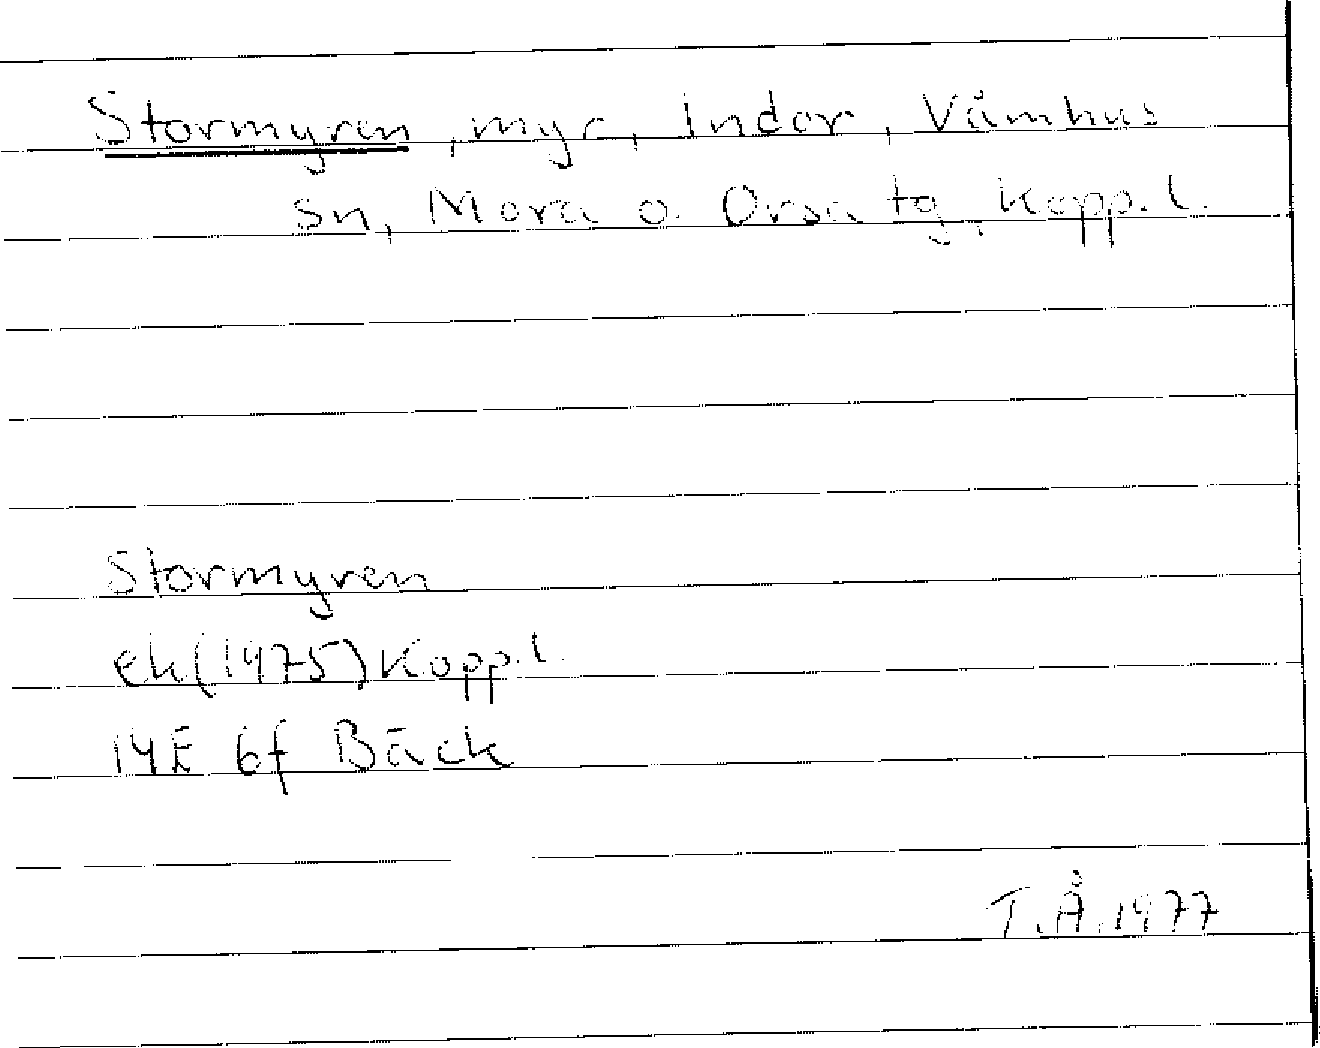 Stormyren, myr, Indor, Våmhus
sn, Mora o. Orsa tg, Kopp. l.
Stormyren
Ek(1975) Kopp. l.
14E 6f Bäck
T.Å. 1977